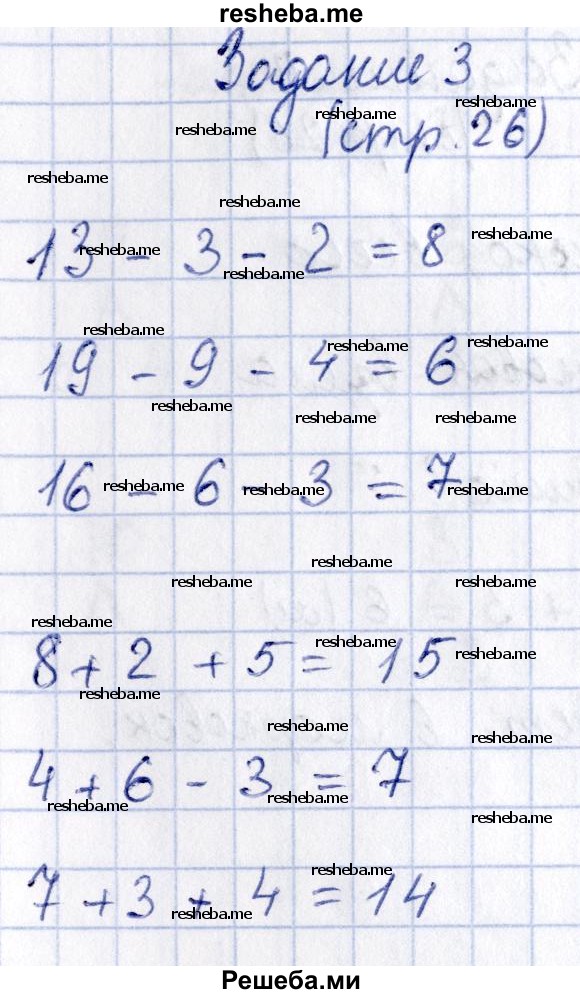 resheba.me
Задание 3
resheba.me
resheba.me
(стр. 26)
resheba.me
resheba.me
resheba.me
13 - 3 - 2 = 8
resheba.me
resheba.me
resheba.me
resheba.me
19 - 9 - 4 = 6
resheba.me
resheba.me
resheba.me
resheba.me
resheba.me
16 - 6 - 3 = 7
resheba.me
resheba.me
resheba.me
resheba.me
resheba.me
resheba.me
resheba.me
8 + 2 + 5 = 15
resheba.me
resheba.me
resheba.me
resheba.me
resheba.me
4 + 6 - 3 = 7
resheba.me
resheba.me
resheba.me
7 + 3 + 4 = 14
resheba.me
resheba.me
Решеба.ми